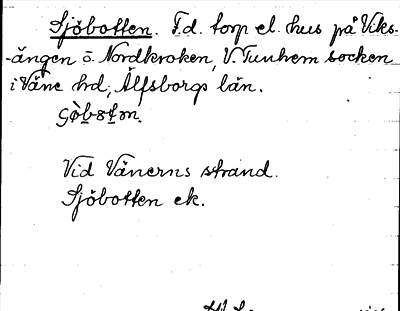 Sjöbotten. F.d. torp el. hus på Viks-
-ängen ö. Nordkroken, V. Tunhem socken
i Väne hd, Älfsborgs län.
Vid Vänerns strand.
Sjöbotten ek.